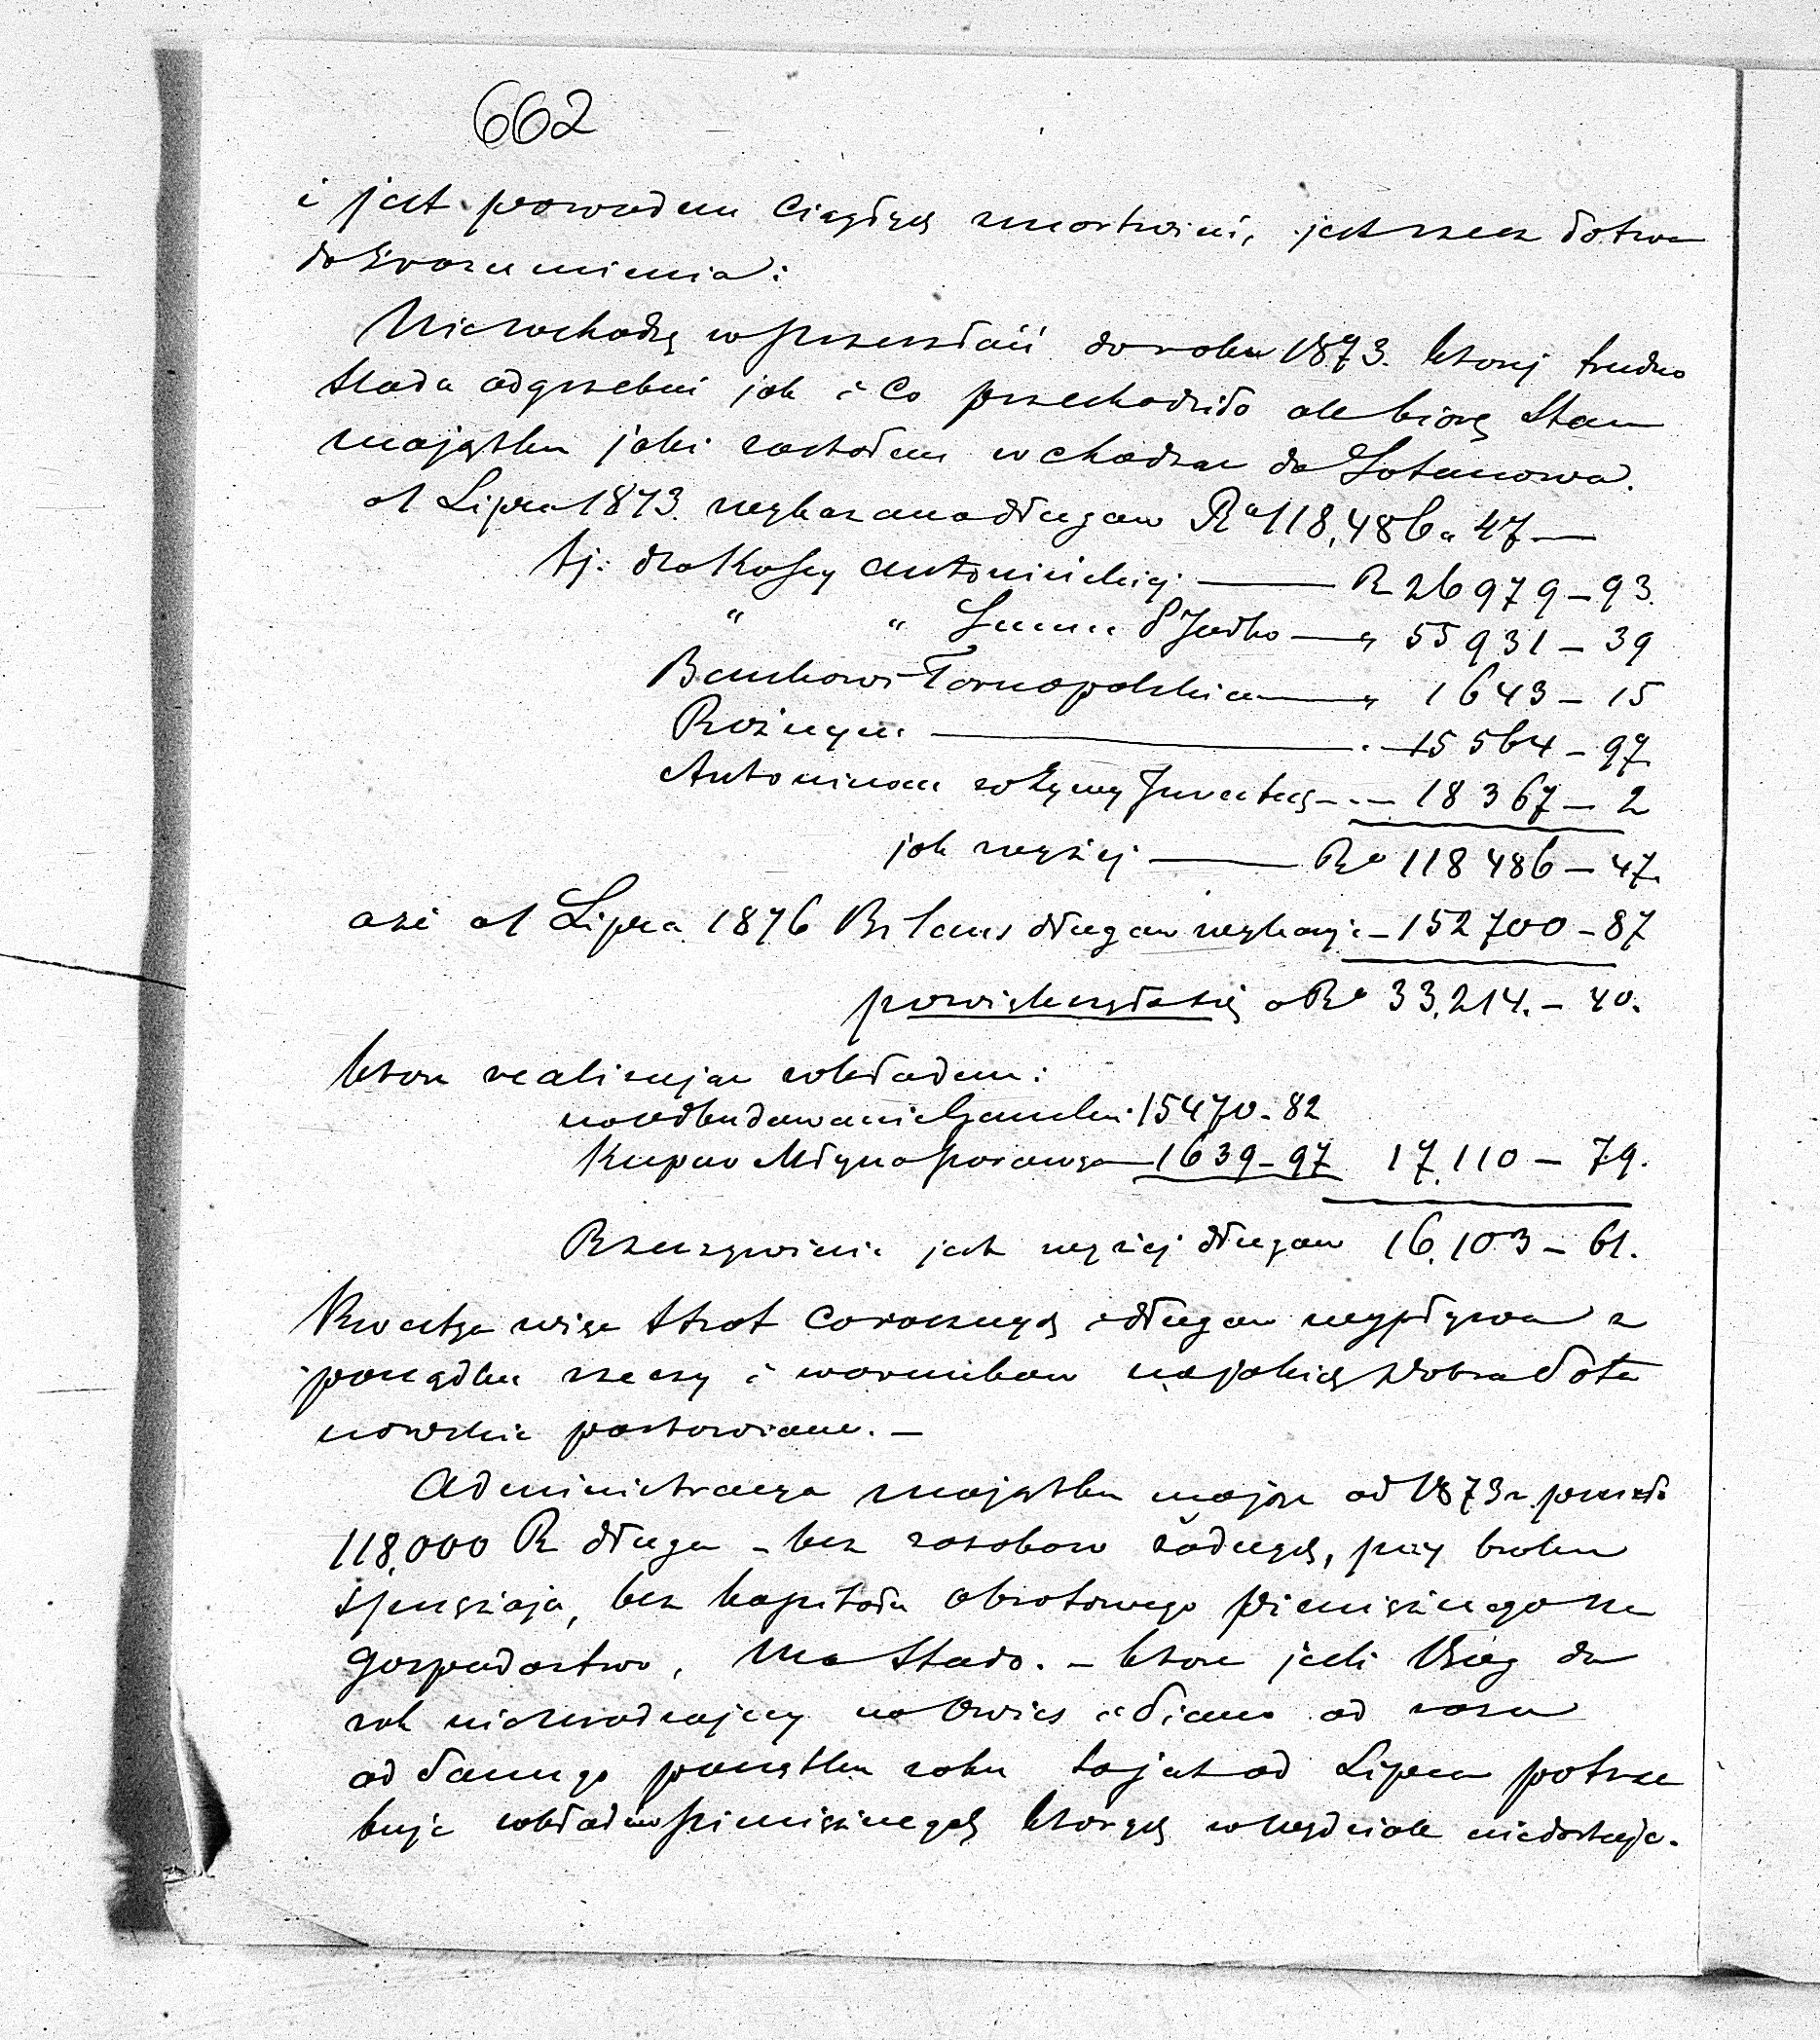 662
i jest powodem ciągłych zmartwień, jest rzecz łatwa
do zrozumienia:
Nie wchodzę w przeszłość do roku 1873. ktorej trudno
Stada odgrzebać jak i co przechodziło ale biorę Stan
majątku jaki zastałem wchodząc do
ot Lipca 1873. wykazano długow Rs 118,486 „ 47 —
tj: dla Kassy Antonińskiej — R 26979 – 93.
" " — „ 55931 – 39
Bankowi Tarnopolskiem — „ 1643 – 15
Rożnym — 15564 – 97
Antoninom — 18367 – 2
jak wyżej — Rs 118486 – 47.
aże ot Lipca 1876 Bilans długow wykazuje – 152700 – 87
powiększyła się o Rs 33.214. – 40.
ktore realizując wkładem:
na odbudowanie 15470 – 82
Kupno Młyna Parowego — 1639 – 97 17.110 – 79.
Rzeczywiście jak wyżej długow 16.103 – 61.
Kwestya więc Strat corocznych i długow wypływa z
porządku rzeczy i warunkow na jakich Dobra Sata
nowskie postawione. –
Administracya majątku mając od 1873 r. przeszło
118,000 R długu – bez zasobow żadnych, przy braku
, bez kapitału obrotowego pienieżnego na
gospodarstwo, ma Stado. – ktore jeśli Bóg da
rok nieurodzajny na Owies i Siano od razu
od samego początku roku to jest od Lipca potrze
buje wkładow pienieżnych ktorych w wydziale niedostaje.